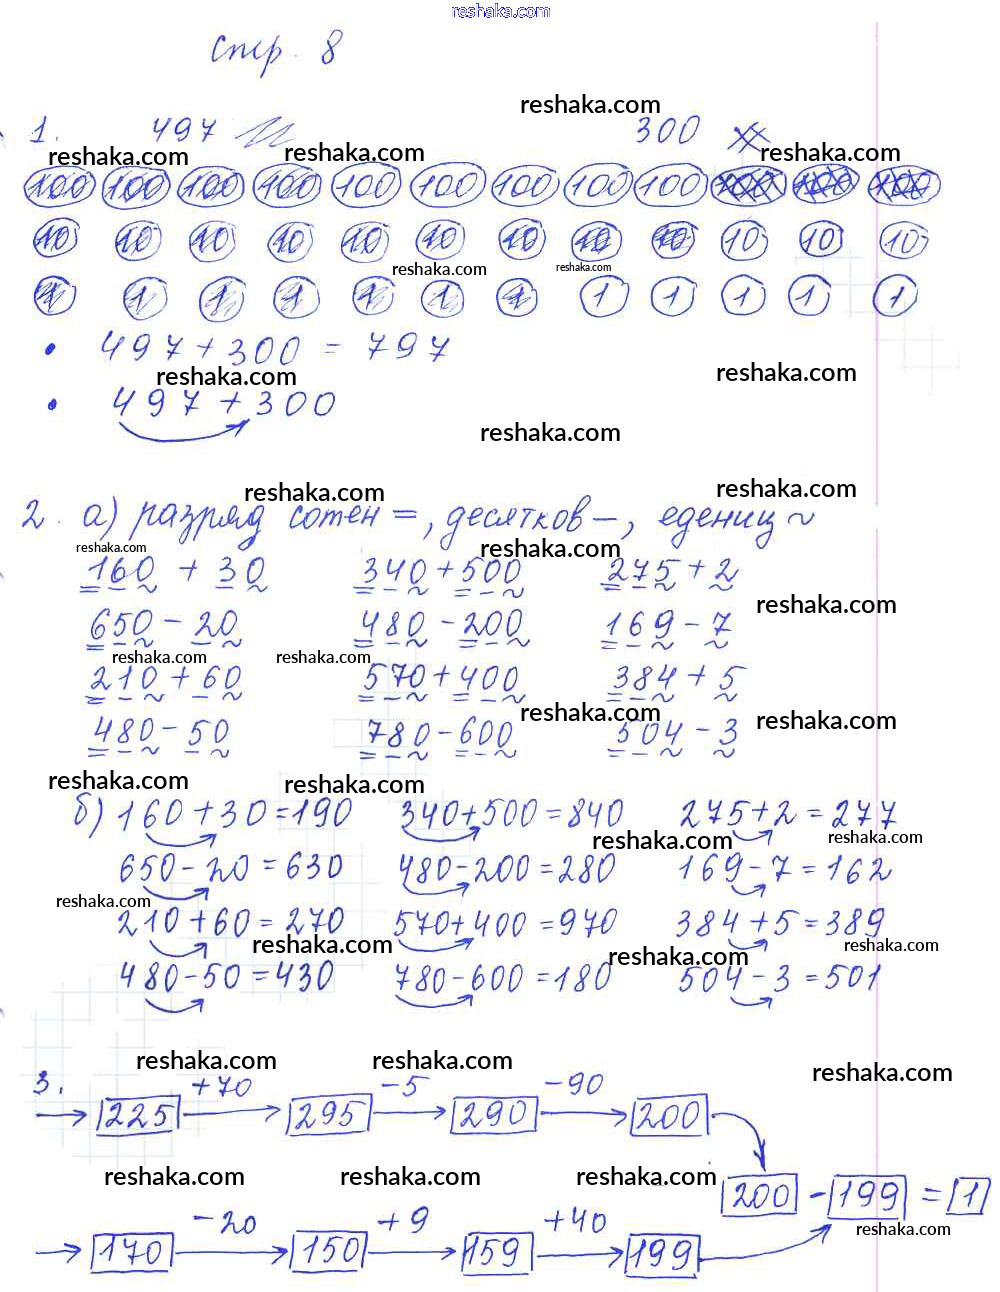 reshaka.com
стр. 8
reshaka.com
1. 497 300
reshaka.com reshaka.com reshaka.com
100 100 100 100 100 100 100 100 100 100 100 100
10 10 10 10 10 10 10 10 10 10 10 10
reshaka.com reshaka.com
1 1 1 1 1 1 1 1 1 1 1 1
• 497 + 300 = 797
reshaka.com reshaka.com
• 497 + 300
reshaka.com
reshaka.com reshaka.com
2. а) разряд сотен =, десятков –, едениц ~
reshaka.com reshaka.com
160 + 30 340 + 500 275 + 2
reshaka.com
650 - 20 480 - 200 169 - 7
reshaka.com reshaka.com
210 + 60 570 + 400 384 + 5
reshaka.com reshaka.com
480 - 50 780 - 600 504 - 3
reshaka.com reshaka.com
б) 160 + 30 = 190 340 + 500 = 840 275 + 2 = 277
reshaka.com reshaka.com
650 - 20 = 630 480 - 200 = 280 169 - 7 = 162
reshaka.com
210 + 60 = 270 570 + 400 = 970 384 + 5 = 389
reshaka.com reshaka.com reshaka.com
480 - 50 = 430 780 - 600 = 180 504 - 3 = 501
reshaka.com reshaka.com reshaka.com
3. +70 -5 -90
225 295 290 200
reshaka.com reshaka.com reshaka.com
200 - 199 = 1
-20 +9 +40 reshaka.com
170 150 159 199